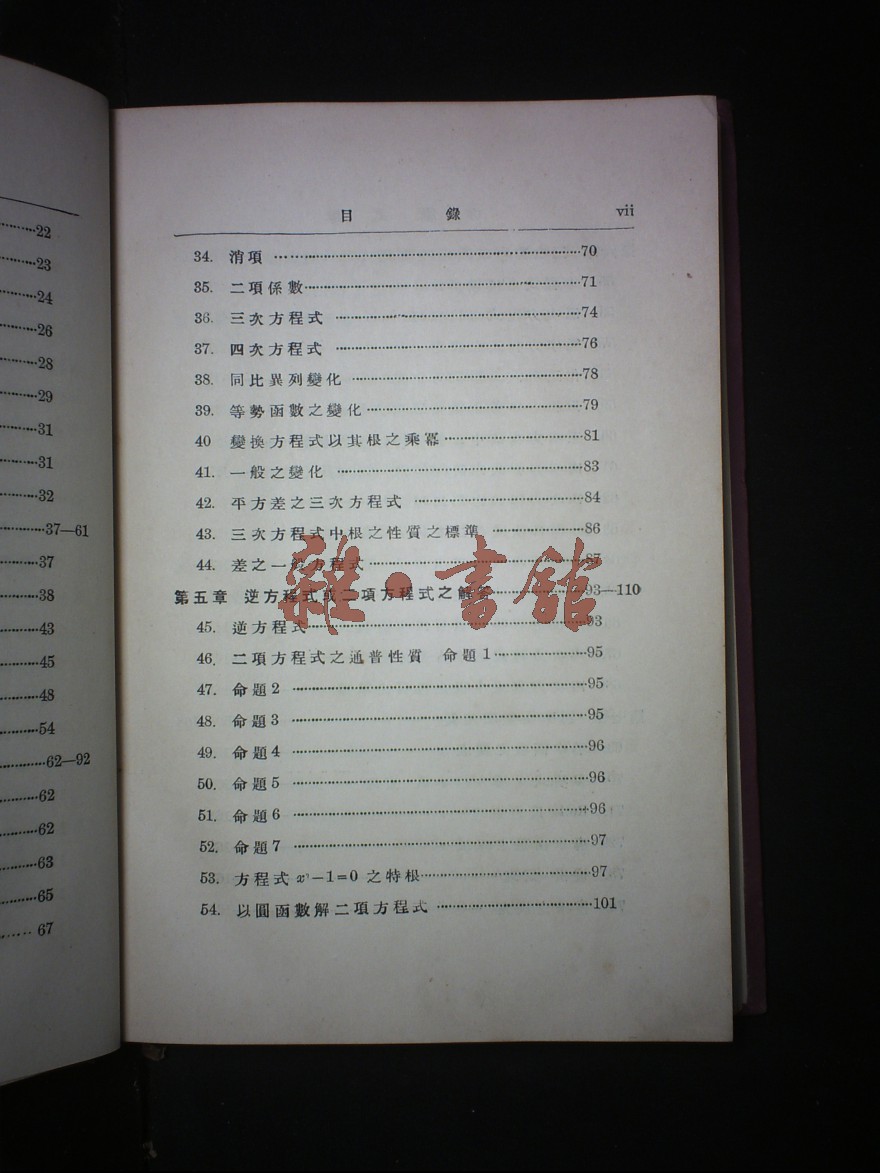 22
23
24
26
28
29
31
31
32
37—61
37
38
43
45
48
54
62—92
62
62
63
65
67
目錄 vii
34. 消項 70
35. 二項係數 71
36. 三次方程式 74
37. 四次方程式 76
38. 同比異列變化 78
39. 等勢函數之變化 79
40 變換方程式以其根之乘冪 81
41. 一般之變化 83
42. 平方差之三次方程式 84
43. 三次方程式中根之性質之標準 86
44. 差之一般方程式 87
第五章 逆方程式或二項方程式之解答 93—110
45. 逆方程式 93
46. 二項方程式之通普性質 命題1 95
47. 命題2 95
48. 命題3 95
49. 命題4 96
50. 命題5 96
51. 命題6 96
52. 命題7 97
53. 方程式 x −1=0 之特根 97
54. 以圓函數解二項方程式 101
雜·書館